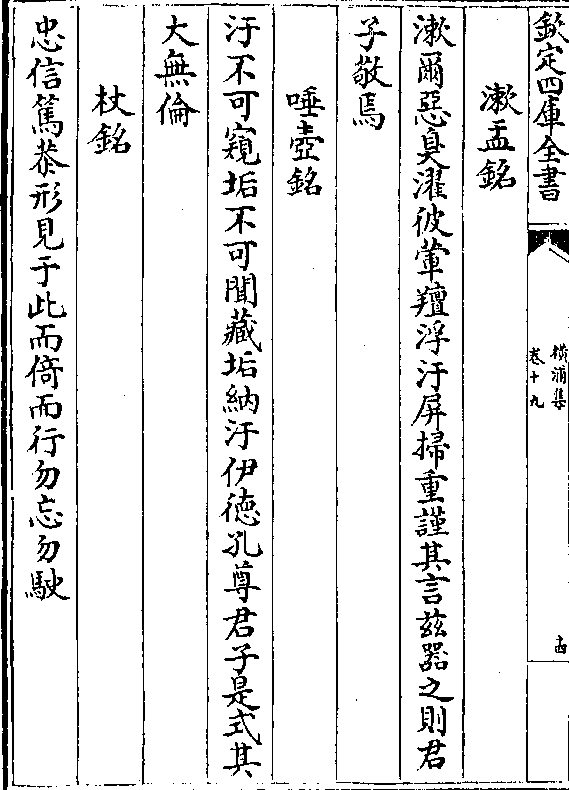 欽定四庫全書
橫浦集
卷十九
十四
漱盂銘
漱爾惡臭濯彼葷羶浮汙屏掃重謹其言兹器之則君
子敬焉
唾壺銘
汙不可窺垢不可聞藏垢納汙伊徳孔尊君子是式其
大無倫
杖銘
忠信篤㳟形見于此而倚而行勿忘勿駛